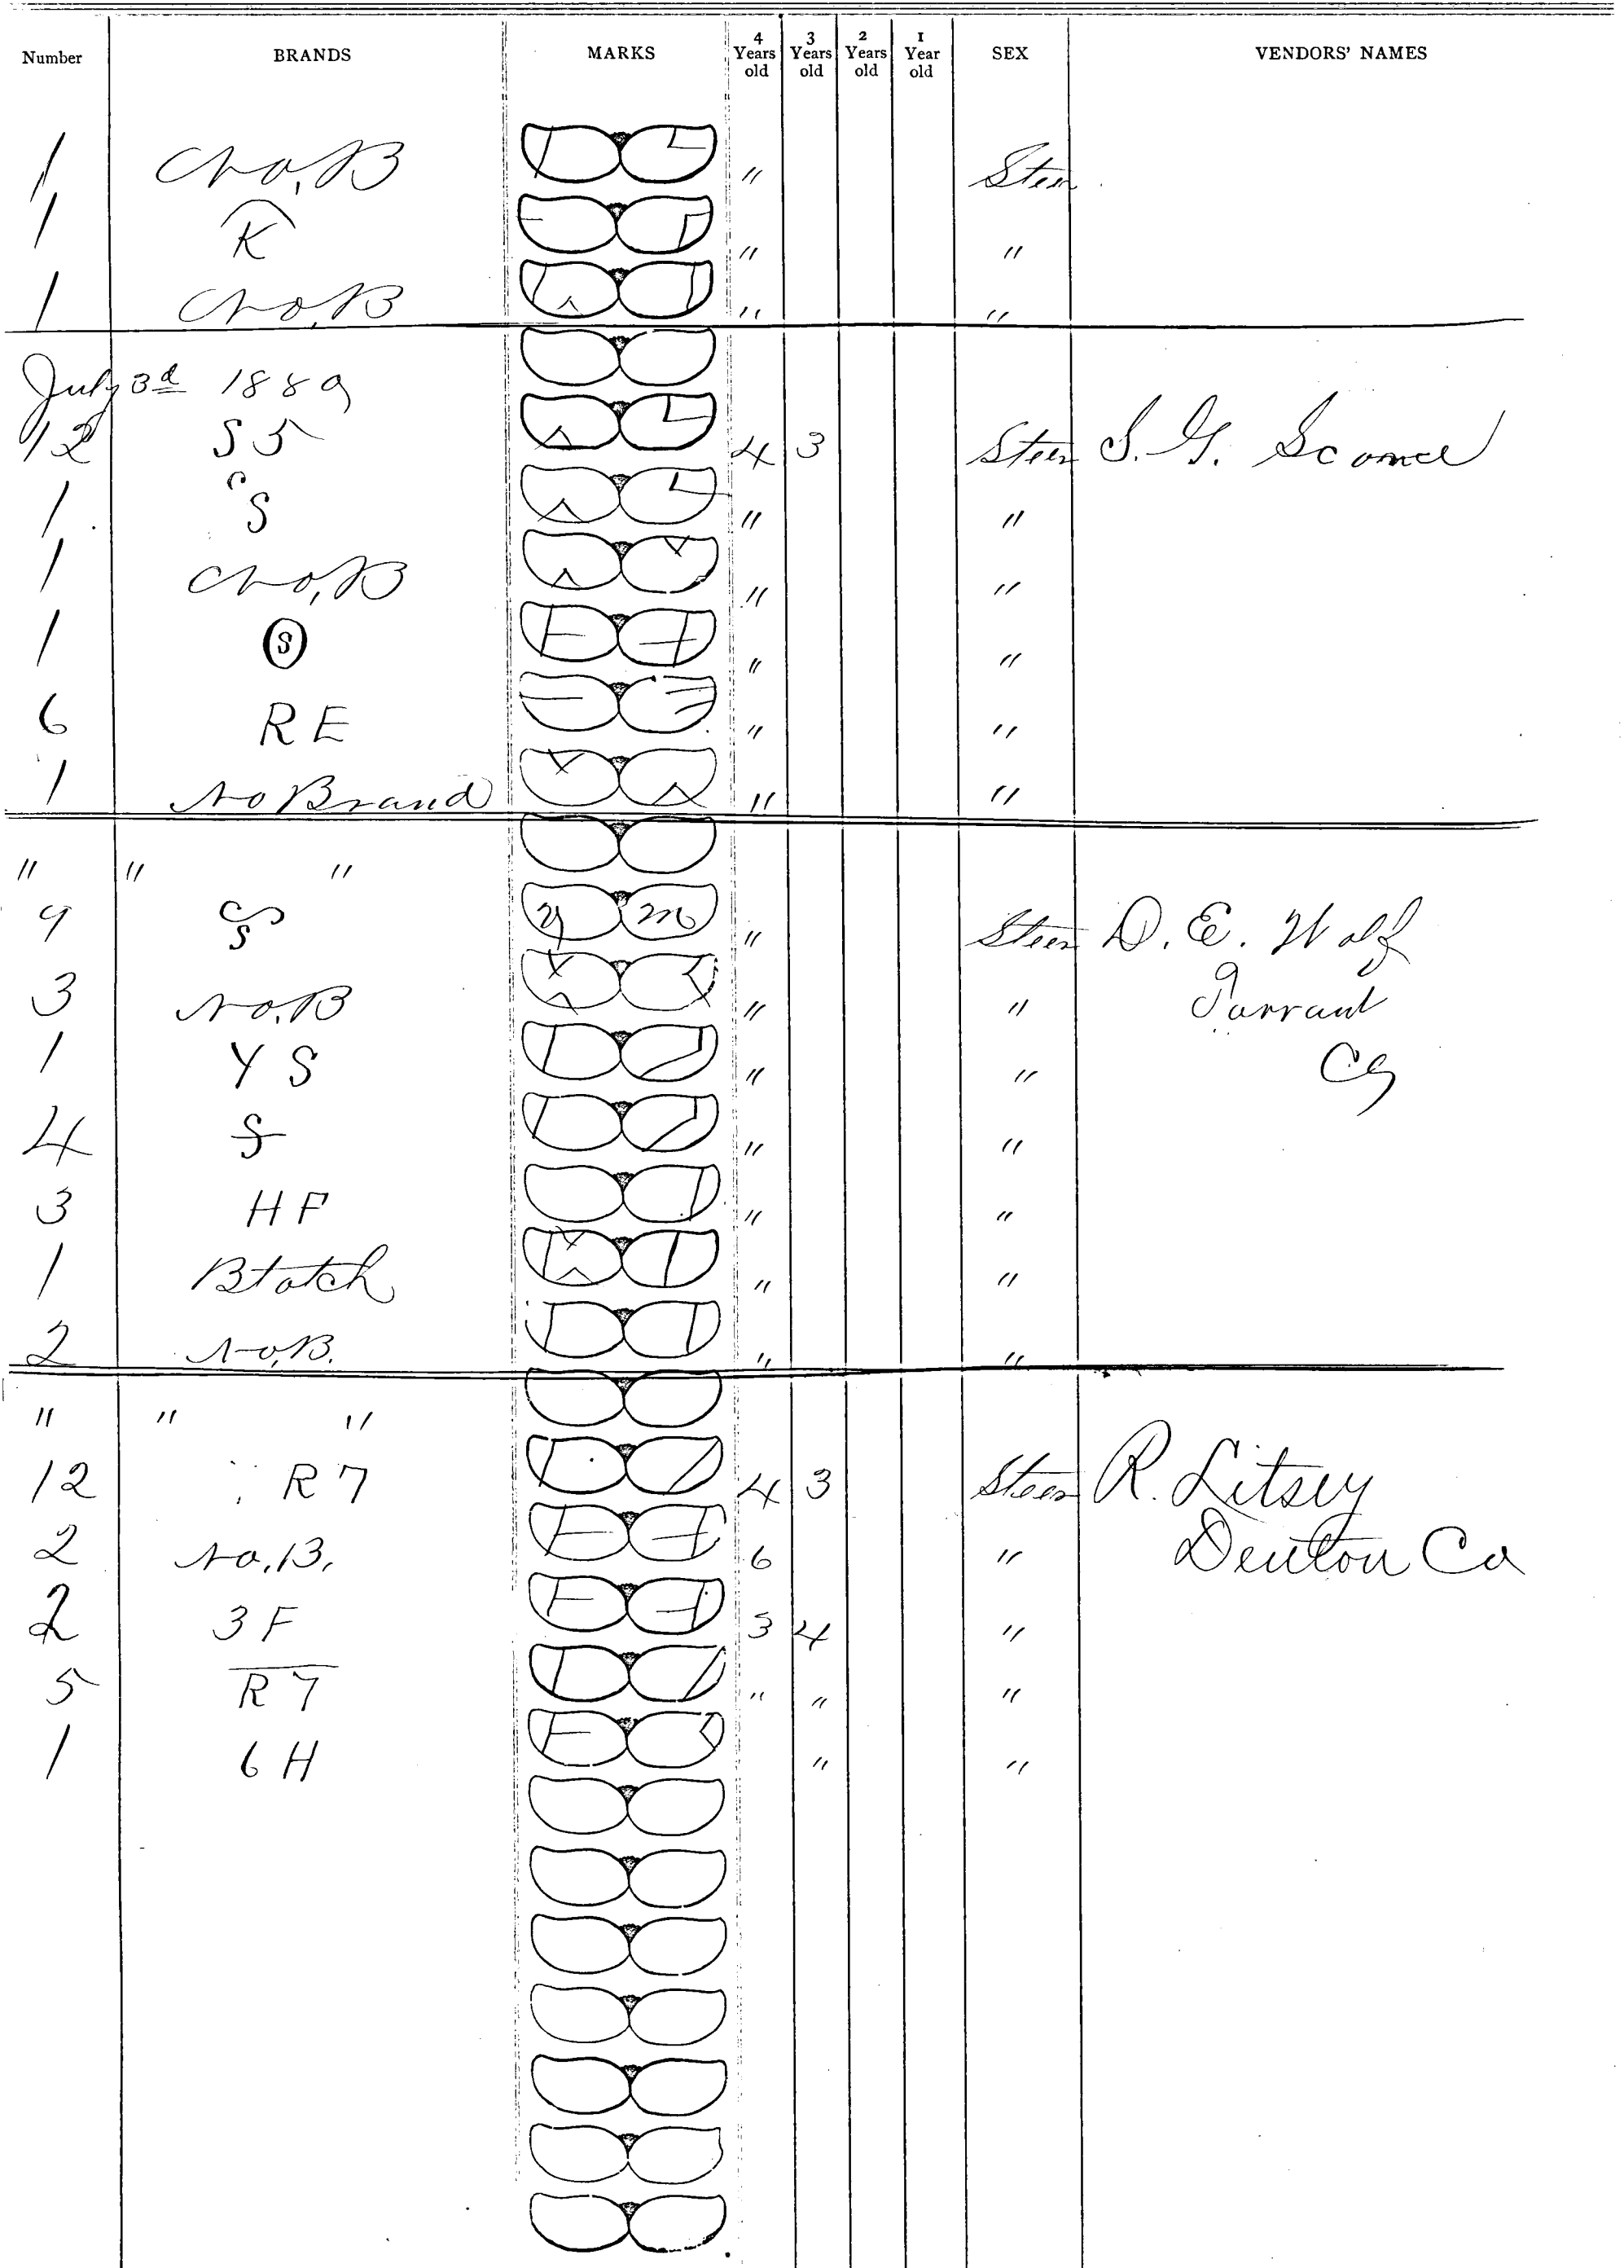 Number BRANDS MARKS 4 Years old 3 Years old 2 Years old 1 Year old SEX VENDORS' NAMES
1 No. B " Steer
1 K " "
1 No. B " "
July 3d 1889
12 S 5 4 3 Steer S. G.
1 S " "
1 No, B " "
1 S " "
6 R E " "
1 No Brand " "
" " "
9 S y m " Steer D. E. Wolf
3 No. B " " Tarrant
1 Y S " " Co
4 S " "
3 H F " "
1 Blotch " "
2 No. B. " "
" " "
12 R 7 4 3 Steer R. Litsey
2 No. B. 6 " Denton Co
2 3 F 3 4 "
5 R 7 " " "
1 6 H " "